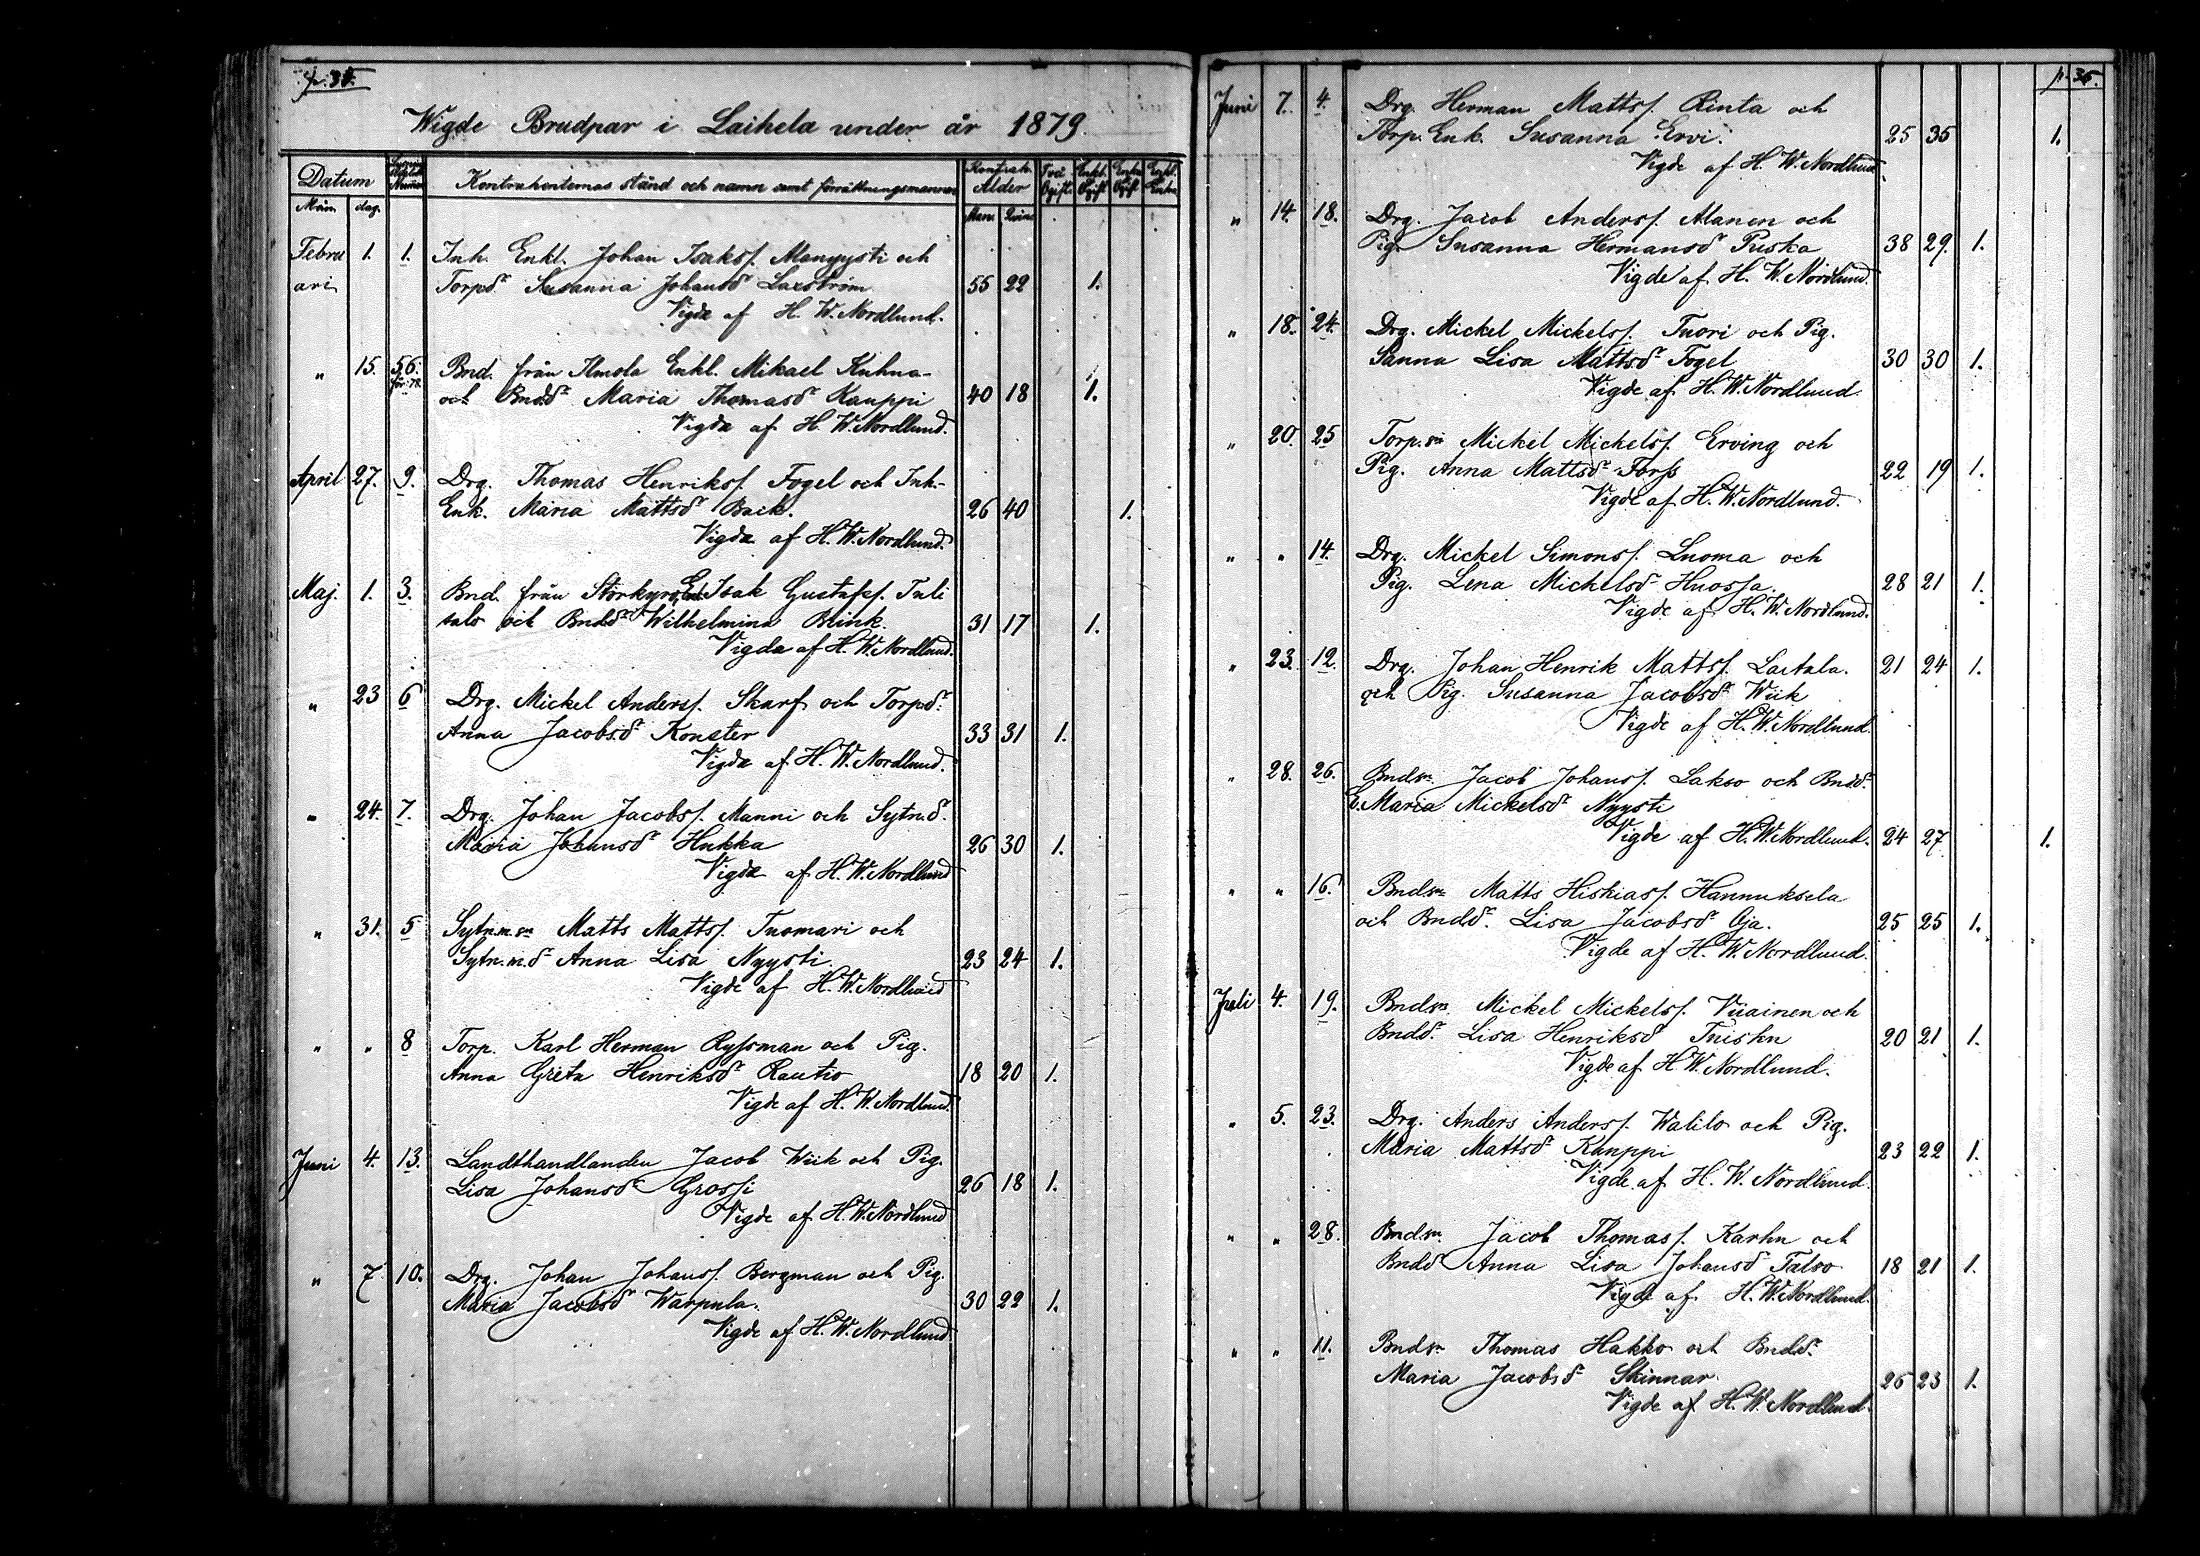 p. 34.
Wigde Brudpar i Laihela under år 1879.
Datum Kontrahenternas stånd och namn samt förrättningsmannen Kontrah. Ålder Två Ogift. Enkl. Ogift Enka Ogift Enkl. Enka
Mån. dag. Man. Qvin.
Febru 1. 1. Inh. Enkl. Johan Isakss. Manyysti och
ari Torpd:r Susanna Johansd:r Laxström 55 22 1.
Vigde af H. W. Nordlund.
" 15. 56. för 78. Bnd. från Ilmola Enkl. Mikael Kuhna-
och Bndd:r Maria Thomasd:r Kauppi 40 18 1.
Vigde af H. W. Nordlund.
April 27. 9. Drg. Thomas Henrikss. Fogel och Inh.-
Enk. Maria Mattsd:r Back. 26 40 1.
Vigde af H. W. Nordlund.
Maj. 1. 3. Bnd. från Storkyro, Enkl. Isak Gustafss. Tuli
salo och Bndd:r Wilhelmina Brink. 31 17 1.
Vigde af H. W. Nordlund.
" 23 6 Drg. Mickel Anderss. Skarf och Torpd:r
Anna Jacobsd:r Konster 33 31 1.
Vigde af H. W. Nordlund.
" 24. 7. Drg. Johan Jacobss. Manni och Sytn.d.
Maria Johansd:r Hukka 26 30 1.
Vigde af H. W. Nordlund
" 31. 5 Sytn.m.sn Matts Mattss. Tuomari och
Sytn.m.d:r Anna Lisa Nyysti. 23 24 1.
Vigde af H. W. Nordlund
" " 8 Torp. Karl Herman Ryssman och Pig.
Anna Greta Henriksd:r Rautio 18 20 1.
Vigde af H. W. Nordlund.
Juni 4. 13. Landthandlanden Jacob Wiik och Pig.
Lisa Johansd:r Grossi 26 18 1.
Vigde af H. W. Nordlund
" 7 10. Drg. Johan Johanss. Bergman och Pig.
Maria Jacobsd:r Warpula. 30 22 1.
Vigde af H. W. Nordlund
p. 35.
Juni 7. 4. Drg. Herman Mattss. Rinta och
Torp. Enk. Susanna Ervi. 25 35 1.
Vigde af H. W. Nordlund.
" 14. 18. Drg. Jacob Anderss. Alanen och
Pig. Susanna Hermansd:r Puska 38 29. 1.
Vigde af H. W. Nordlund.
" 18. 24. Drg. Mickel Mickelss. Tuori och Pig.
Sanna Lisa Mattsd:r Fogel 30 30 1.
Vigde af H. W. Nordlund.
" 20. 25 Torp.sn Mickel Mickelss. Erving och
Pig. Anna Mattsd:r Forss 22 19 1.
Vigde af H. W. Nordlund.
" " 14. Drg. Mickel Simonss. Luoma och
Pig. Lena Michelsd:r Huossa. 28 21 1.
Vigde af H. W. Nordlund.
" 23. 12. Drg. Johan Henrik Mattss. Laitala. 21 24 1.
och Pig. Susanna Jacobsd:r Wiik
Vigde af H. W. Nordlund.
" 28. 26. Bndsn. Jacob Johanss. Lakso och Bndd:r
E. Maria Mickelsd:r Nyysti
Vigde af H. W. Nordlund. 24 27 1.
" " 16. Bndsn. Matts Hiskiass. Hannuksela
och Bndd:r Lisa Jacobsd:r Oja. 25 25 1.
Vigde af H. W. Nordlund.
Juli 4. 19. Bndsn Mickel Mickelss. Viiainen och
Bndd:r Lisa Henriksd:r Tuisku 20 21 1.
Vigde af H. W. Nordlund.
" 5. 23. Drg. Anders Anderss. Walilo och Pig.
Maria Mattsd:r Kauppi 23 22 1.
Vigde af H. W. Nordlund.
" " 28. Bndsn. Jacob Thomass. Karhu och
Bndd:r Anna Lisa Johansd:r Talso 18 21 1.
Vigde af H. W. Nordlund.
" " 11. Bndsn Thomas Hakko och Bndd:r
Maria Jacobsd:r Skinnar. 26 23 1.
Vigde af H. W. Nordlund.